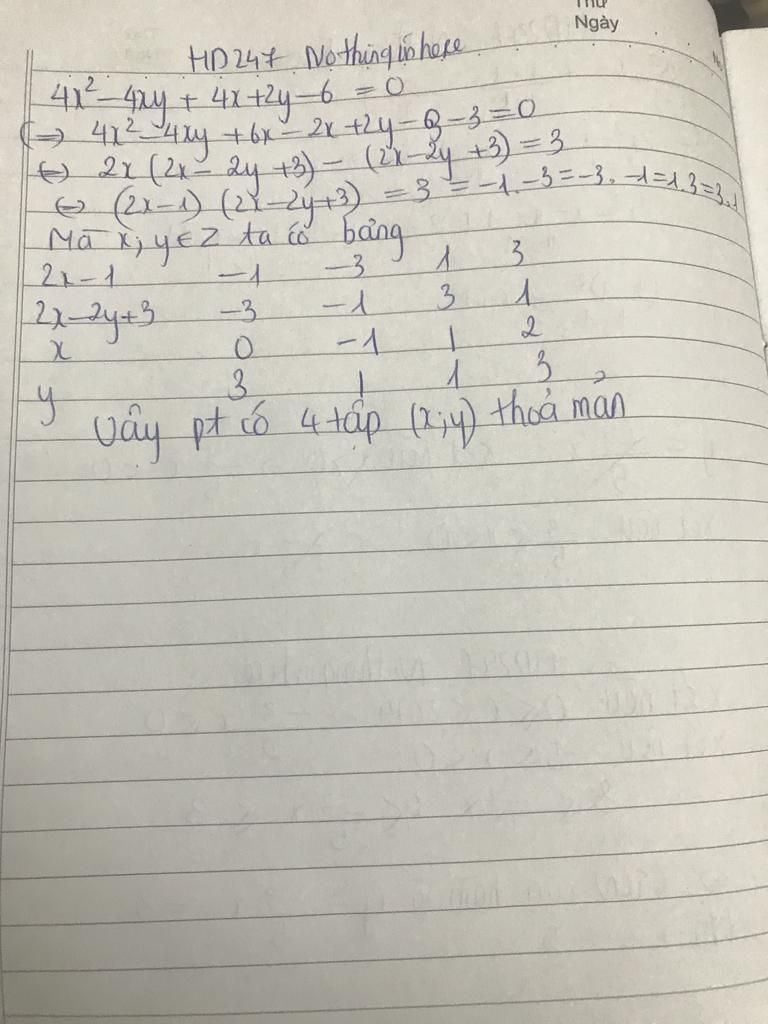 Thứ
Ngày
HD247 Nothinginhere
4x² − 4xy + 4x + 2y − 6 = 0
(=) 4x² − 4xy + 6x − 2x + 2y − 3 − 3 = 0
(=) 2x (2x − 2y + 3) − (2x − 2y + 3) = 3
(=) (2x − 1) (2x − 2y + 3) = 3 = −1. −3 = −3. −1 = 1.3 = 3.1
Mà x; y ∈ Z ta có bảng
2x − 1 −1 −3 1 3
2x − 2y + 3 −3 −1 3 1
x 0 −1 1 2
y 3 1 1 3
Vậy pt có 4 tập (x;y) thoả mản